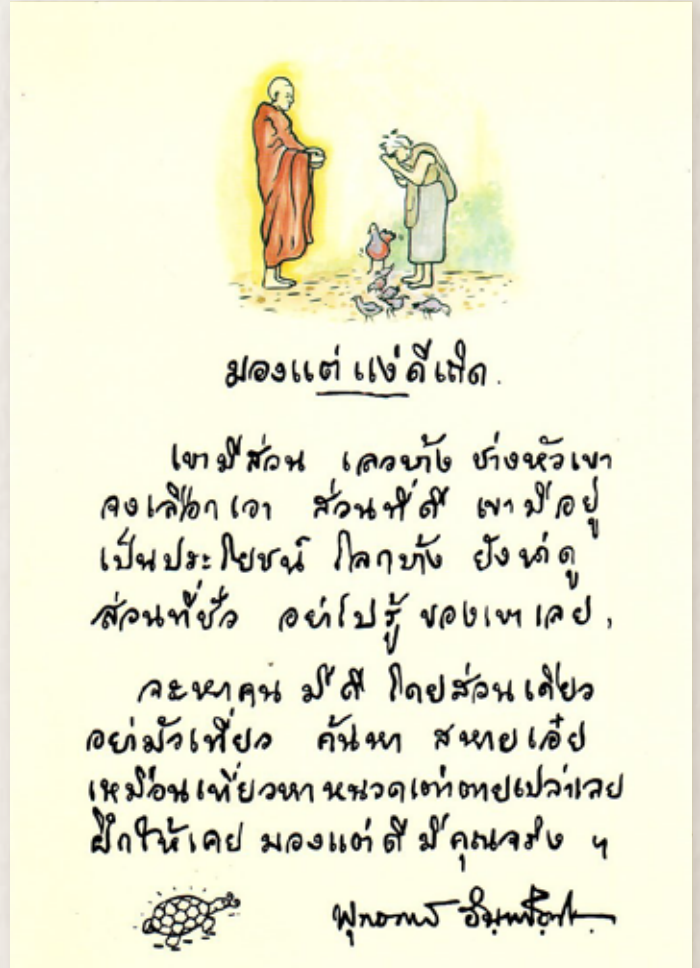 มองแต่ แง่ดีเถิด.
เขามีส่วน เลวบ้าง ช่างหัวเขา
จงเลือกเอา ส่วนที่ดี เขามีอยู่
เป็นประโยชน์ โลกบ้าง ยังน่าดู
ส่วนที่ชั่ว อย่าไปรู้ ของเขาเลย,
จะหาคน มีดี โดยส่วนเดียว
อย่ามัวเที่ยว ค้นหา สหายเอ๋ย
เหมือนเที่ยวหา หนวดเต่า ตายเปล่าเลย
ฝึกให้เคย มองแต่ดี มีคุณจริง ฯ
พุทธทาส อินฺทปญฺโญ